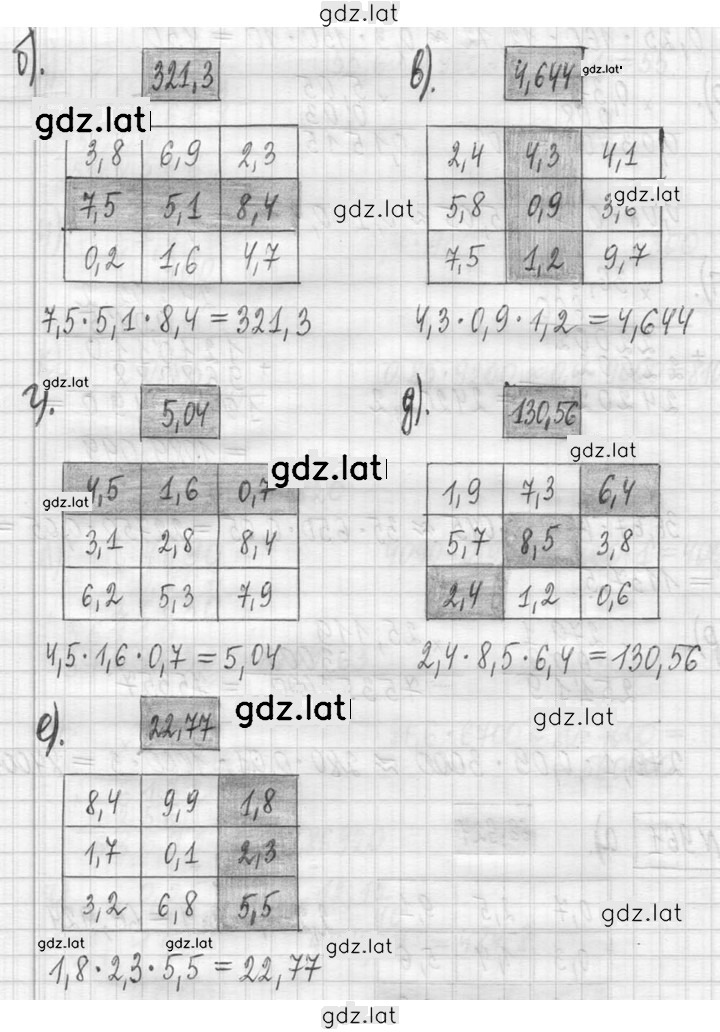 gdz.lat
б).
321,3
gdz.lat
3,8 6,9 2,3
7,5 5,1 8,4
0,2 1,6 4,7
7,5·5,1·8,4=321,3
в).
4,644
gdz.lat
2,4 4,3 4,1
5,8 0,9 3,6
7,5 1,2 9,7
gdz.lat
gdz.lat
4,3·0,9·1,2=4,644
gdz.lat
г).
5,04
4,5 1,6 0,7
3,1 2,8 8,4
6,2 5,3 7,9
gdz.lat
gdz.lat
4,5·1,6·0,7=5,04
д).
130,56
gdz.lat
1,9 7,3 6,4
5,7 8,5 3,8
2,4 1,2 0,6
2,4·8,5·6,4=130,56
е).
22,77
gdz.lat
gdz.lat
8,4 9,9 1,8
1,7 0,1 2,3
3,2 6,8 5,5
gdz.lat
gdz.lat
gdz.lat
gdz.lat
1,8·2,3·5,5=22,77
gdz.lat